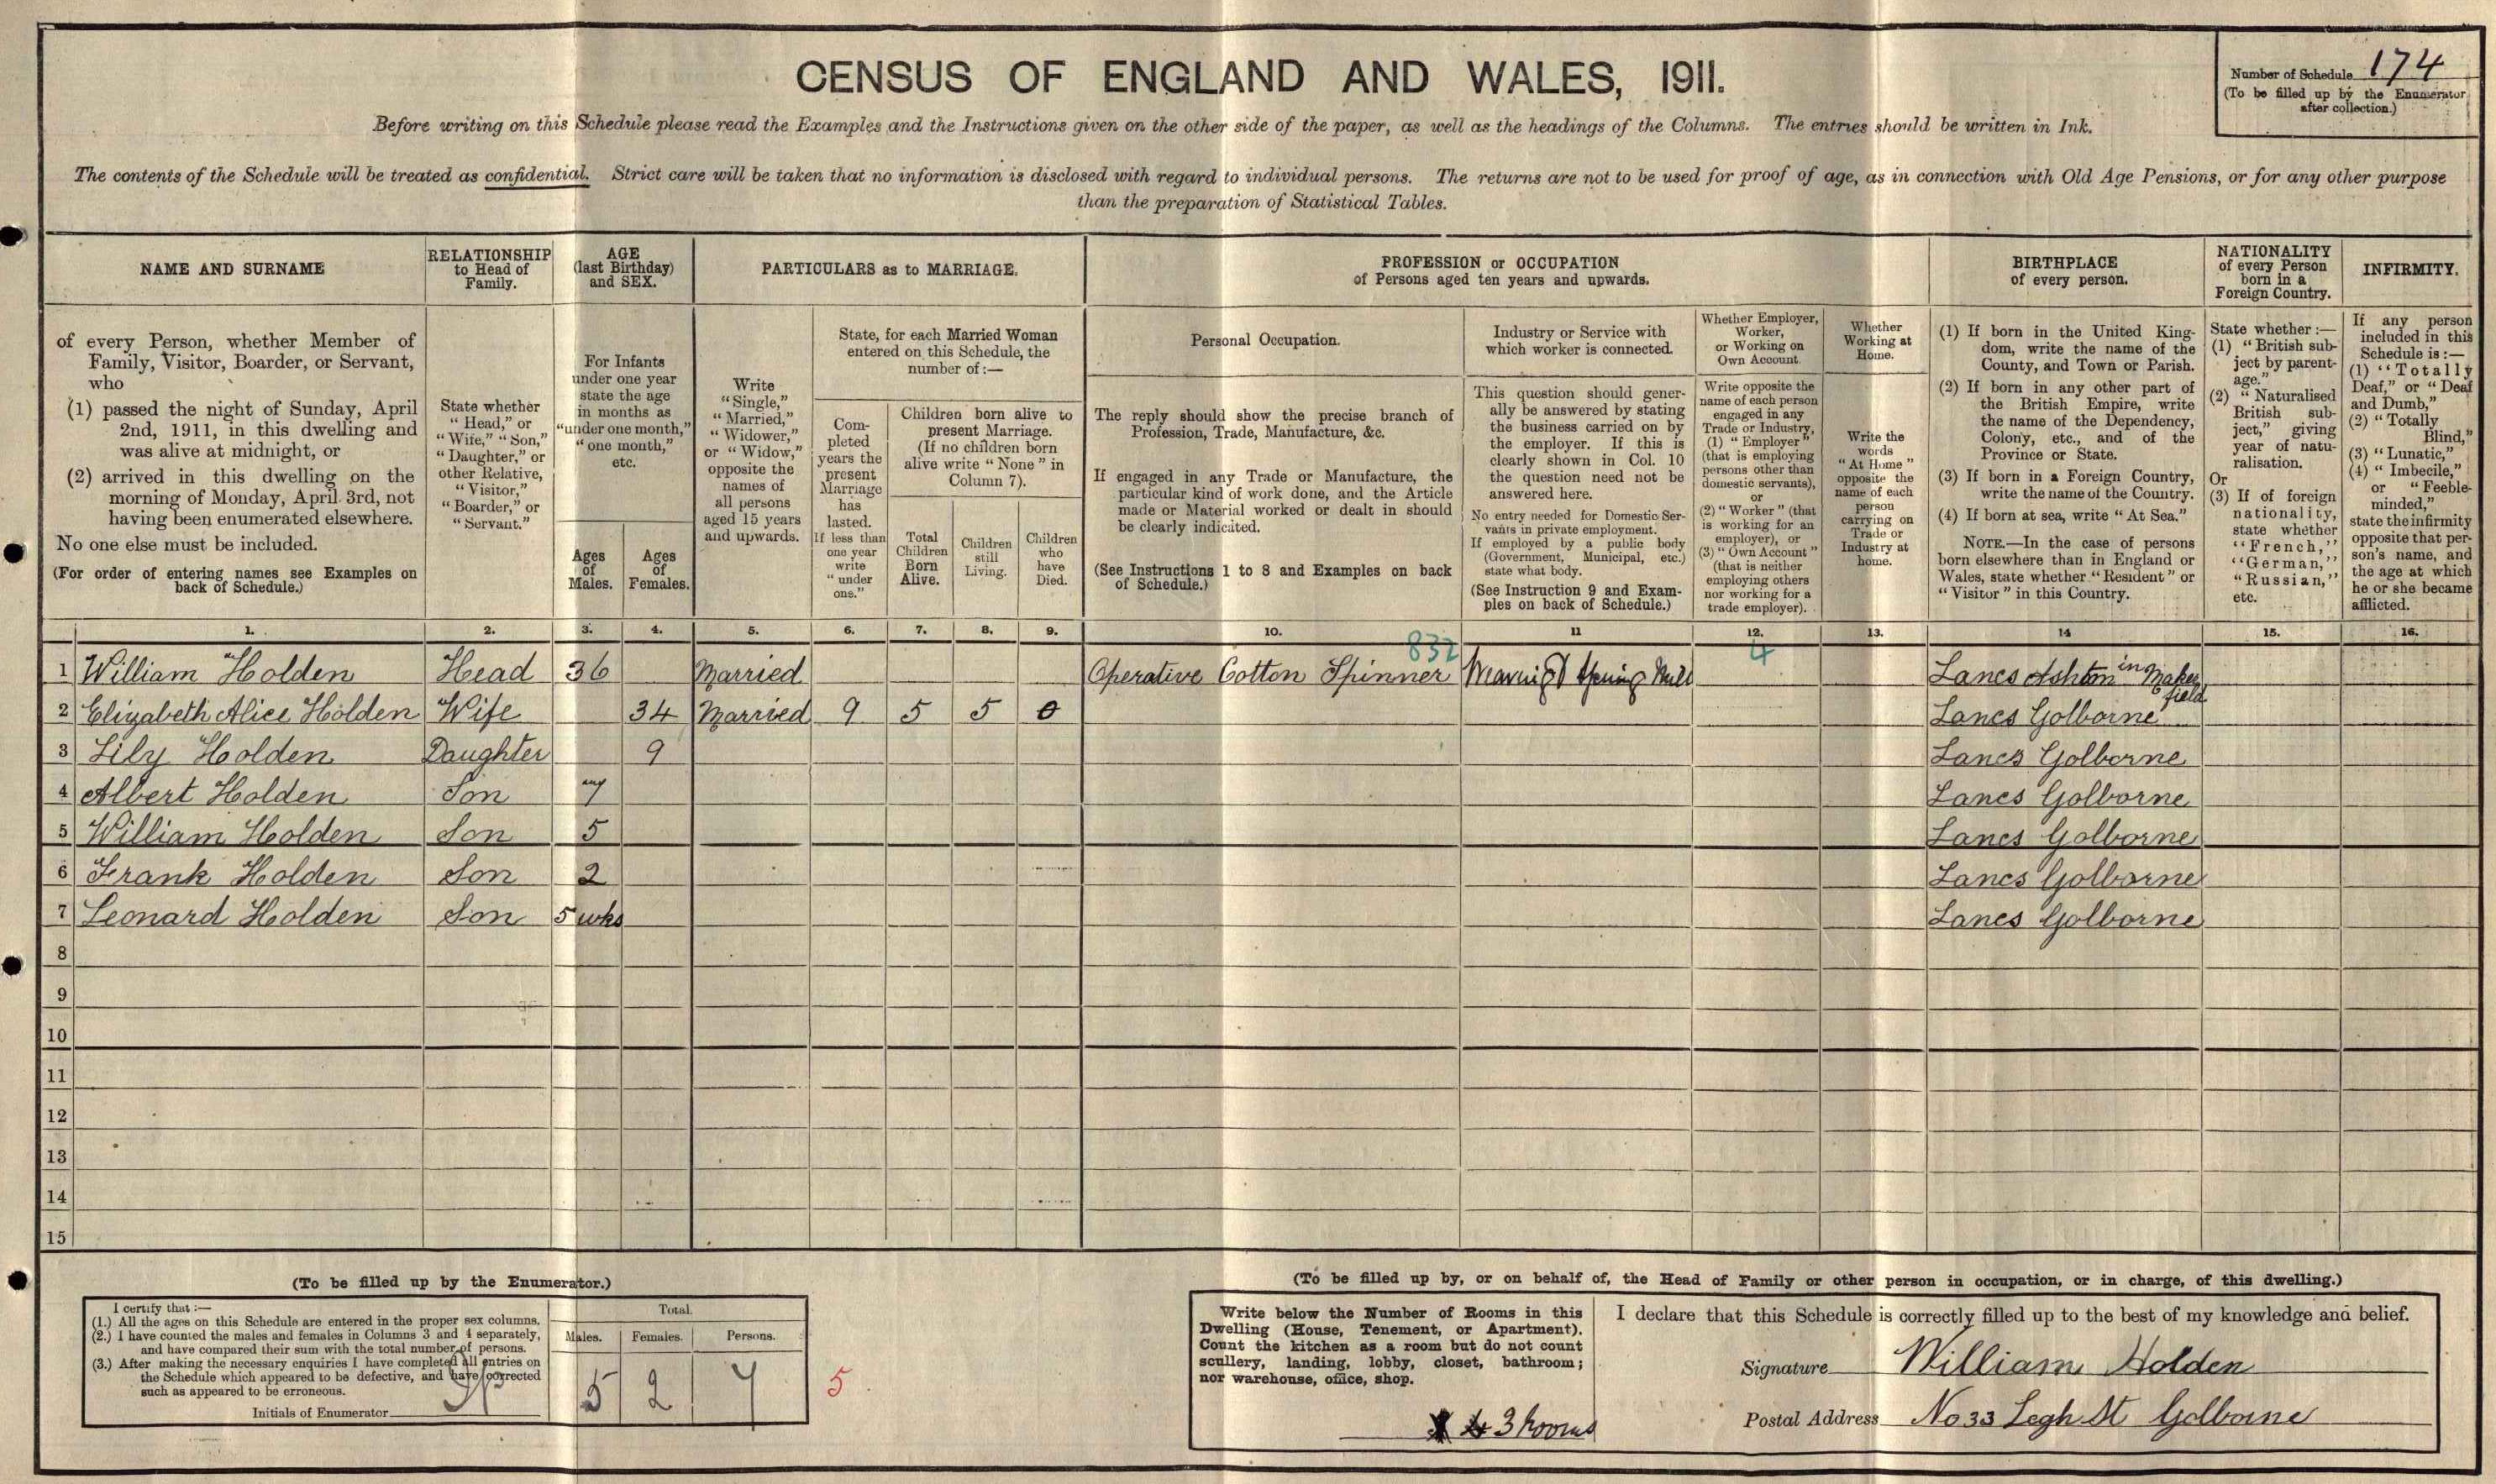 CENSUS OF ENGLAND AND WALES, 1911.
Number of Schedule 174
(To be filled up by the Enumerator
after collection.)
Before writing on this Schedule please read the Examples and the Instructions given on the other side of the paper, as well as the headings of the Columns. The entries should be written in Ink.
The contents of the Schedule will be treated as confidential. Strict care will be taken that no information is disclosed with regard to individual persons. The returns are not to be used for proof of age, as in connection with Old Age Pensions, or for any other purpose
than the preparation of Statistical Tables.
NAME AND SURNAME
of every Person, whether Member of
Family, Visitor, Boarder, or Servant,
who
(1) passed the night of Sunday, April
2nd, 1911, in this dwelling and
was alive at midnight, or
(2) arrived in this dwelling on the
morning of Monday, April 3rd, not
having been enumerated elsewhere.
No one else must be included.
(For order of entering names see Examples on
back of Schedule.)
RELATIONSHIP
to Head of
Family.
State whether
"Head," or
"Wife," "Son,"
"Daughter," or
other Relative,
"Visitor,"
"Boarder," or
"Servant."
AGE
(last Birthday)
and SEX.
For Infants
under one year
state the age
in months as
"under one month,"
"one month,"
etc.
Ages
of
Males.
Ages
of
Females.
PARTICULARS as to MARRIAGE.
Write
"Single,"
"Married,"
"Widower,"
or "Widow,"
opposite the
names of
all persons
aged 15 years
and upwards.
State, for each Married Woman
entered on this Schedule, the
number of :—
Com-
pleted
years the
present
Marriage
has
lasted.
If less than
one year
write
"under
one."
Children born alive to
present Marriage.
(If no children born
alive write "None" in
Column 7).
Total
Children
Born
Alive.
Children
still
Living.
Children
who
have
Died.
PROFESSION or OCCUPATION
of Persons aged ten years and upwards.
Personal Occupation.
The reply should show the precise branch of
Profession, Trade, Manufacture, &c.
If engaged in any Trade or Manufacture, the
particular kind of work done, and the Article
made or Material worked or dealt in should
be clearly indicated.
(See Instructions 1 to 8 and Examples on back
of Schedule.)
Industry or Service with
which worker is connected.
This question should gener-
ally be answered by stating
the business carried on by
the employer. If this is
clearly shown in Col. 10
the question need not be
answered here.
No entry needed for Domestic Ser-
vants in private employment.
If employed by a public body
(Government, Municipal, etc.)
state what body.
(See Instruction 9 and Exam-
ples on back of Schedule.)
Whether Employer,
Worker,
or Working on
Own Account.
Write opposite the
name of each person
engaged in any
Trade or Industry,
(1) "Employer"
(that is employing
persons other than
domestic servants),
or
(2) "Worker" (that
is working for an
employer), or
(3) "Own Account"
(that is neither
employing others
nor working for a
trade employer).
Whether
Working at
Home.
Write the
words
"At Home"
opposite the
name of each
person
carrying on
Trade or
Industry at
home.
BIRTHPLACE
of every person.
(1) If born in the United King-
dom, write the name of the
County, and Town or Parish.
(2) If born in any other part of
the British Empire, write
the name of the Dependency,
Colony, etc., and of the
Province or State.
(3) If born in a Foreign Country,
write the name of the Country.
(4) If born at sea, write "At Sea."
NOTE.—In the case of persons
born elsewhere than in England or
Wales, state whether "Resident" or
"Visitor" in this Country.
NATIONALITY
of every Person
born in a
Foreign Country.
State whether :—
(1) "British sub-
ject by parent-
age."
(2) "Naturalised
British sub-
ject," giving
year of natu-
ralisation.
Or
(3) If of foreign
nationality,
state whether
"French,"
"German,"
"Russian,"
etc.
INFIRMITY.
If any person
included in this
Schedule is :—
(1) "Totally
Deaf," or "Deaf
and Dumb,"
(2) "Totally
Blind,"
(3) "Lunatic,"
(4) "Imbecile,"
or "Feeble-
minded,"
state the infirmity
opposite that per-
son's name, and
the age at which
he or she became
afflicted.
1. 2. 3. 4. 5. 6. 7. 8. 9. 10. 11 12. 13. 14 15. 16.
832 4
1 William Holden Head 36 Married Operative Cotton Spinner Lancs Ashton in Maker
field
2 Elizabeth Alice Holden Wife 34 Married 9 5 5 0 Lancs Golborne
3 Lily Holden Daughter 9 Lancs Golborne
4 Albert Holden Son 7 Lancs Golborne
5 William Holden Son 5 Lancs Golborne
6 Frank Holden Son 2 Lancs Golborne
7 Leonard Holden Son 5 wks Lancs Golborne
8
9
10
11
12
13
14
15
(To be filled up by the Enumerator.)
I certify that :—
(1.) All the ages on this Schedule are entered in the proper sex columns.
(2.) I have counted the males and females in Columns 3 and 4 separately,
and have compared their sum with the total number of persons.
(3.) After making the necessary enquiries I have completed all entries on
the Schedule which appeared to be defective, and have corrected
such as appeared to be erroneous.
Initials of Enumerator
Total.
Males. Females. Persons.
5 2 7
5
(To be filled up by, or on behalf of, the Head of Family or other person in occupation, or in charge, of this dwelling.)
Write below the Number of Rooms in this
Dwelling (House, Tenement, or Apartment).
Count the kitchen as a room but do not count
scullery, landing, lobby, closet, bathroom;
nor warehouse, office, shop.
3 Rooms
I declare that this Schedule is correctly filled up to the best of my knowledge and belief.
Signature William Holden
Postal Address No 33 Legh St Golborne